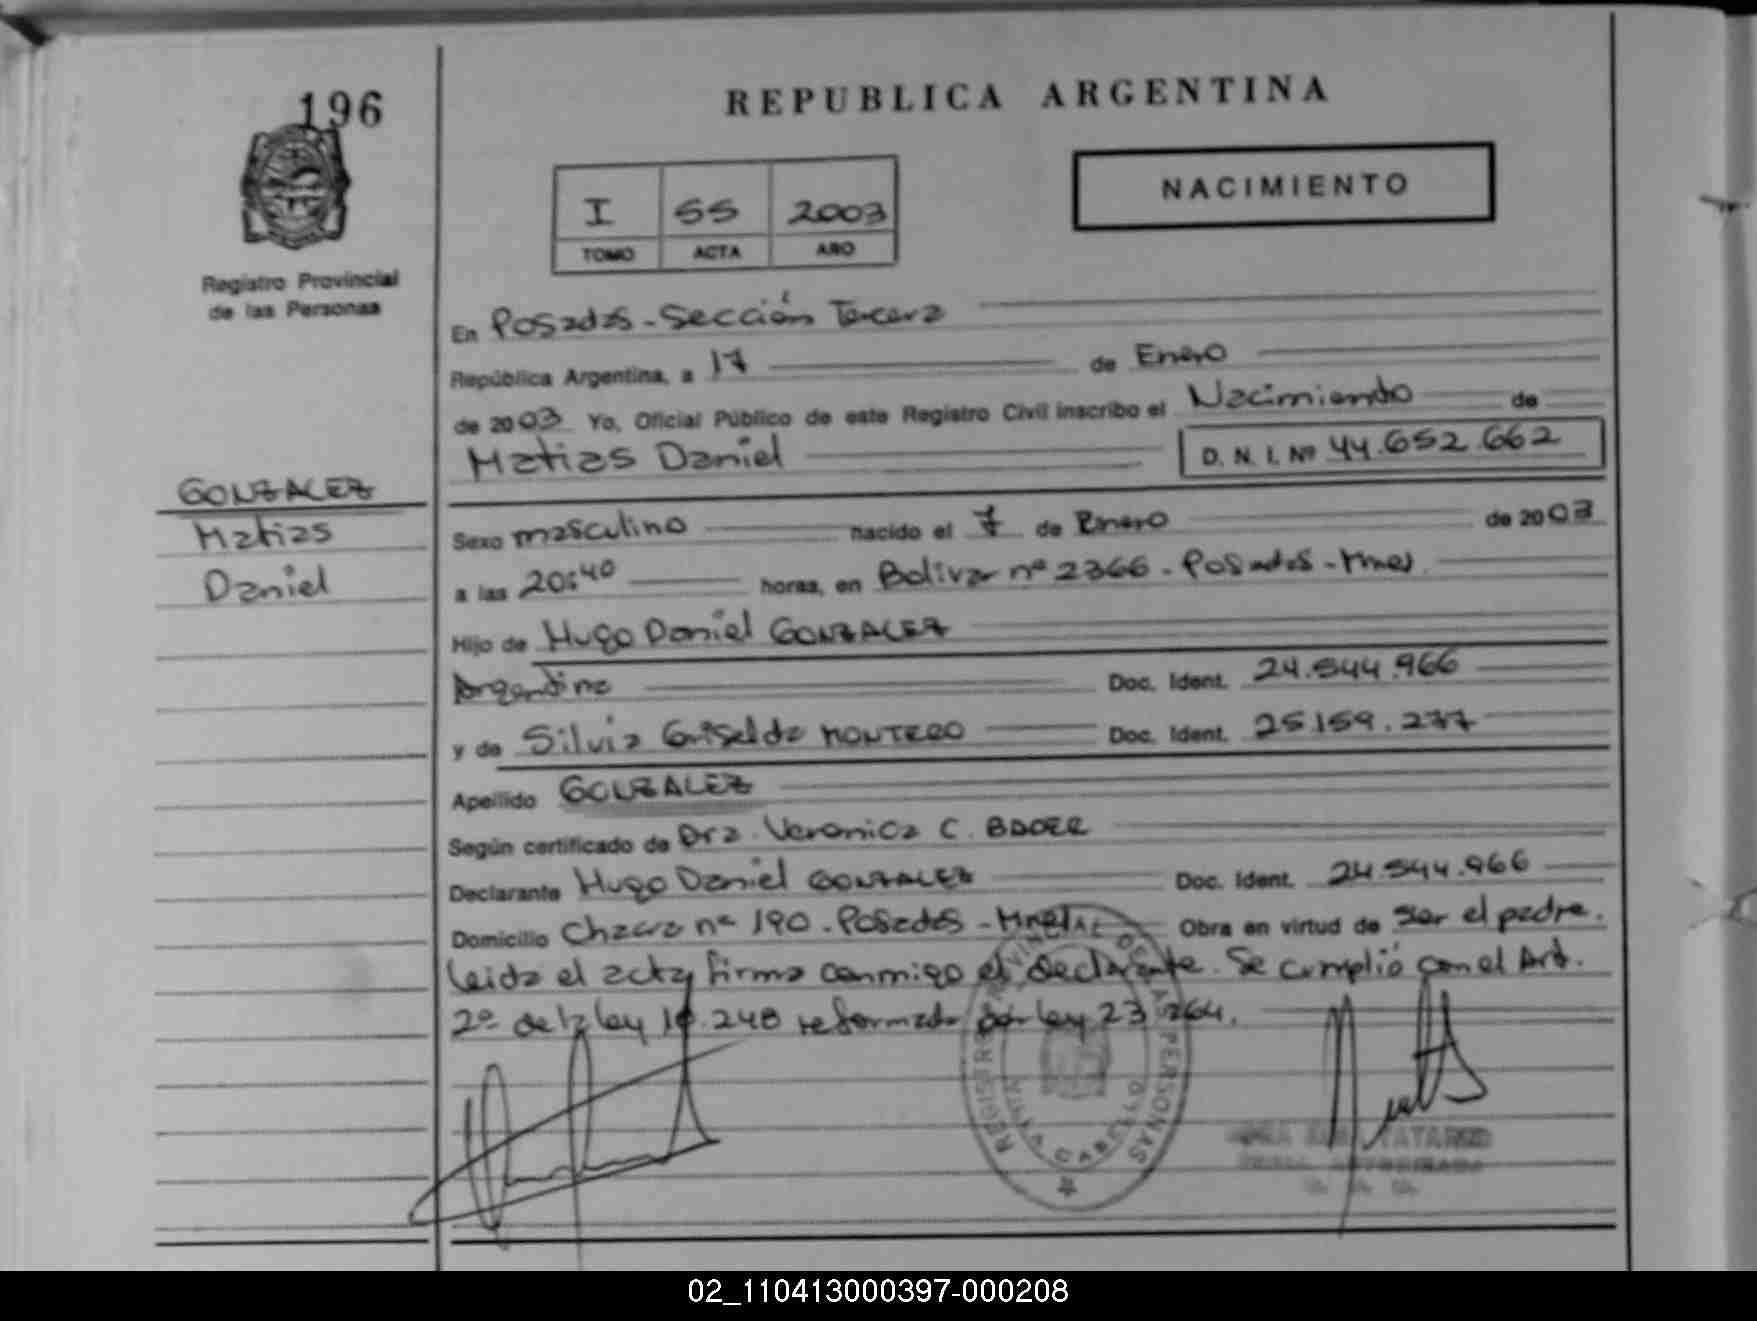 196
REPUBLICA ARGENTINA
NACIMIENTO
I 55 2003
TOMO ACTA AÑO
Registro Provincial
de las Personas
En Posadas - Sección Tercera
República Argentina, a 17 de Enero
de 2003 Yo, Oficial Público de este Registro Civil inscribo el Nacimiento de
Matias Daniel D. N. I. Nº 44.652.662
GONZALEZ
Matias
Daniel
Sexo masculino nacido el 7 de Enero de 2003
a las 20:40 horas, en Bolivar nº 2366 - Posadas - Mnes.
Hijo de Hugo Daniel GONZALEZ
Argentino Doc. Ident. 24.544.966
y de Silvia Griselda MONTERO Doc. Ident. 25.159.277
Apellido GONZALEZ
Según certificado de Dra. Veronica C.
Declarante Hugo Daniel GONZALEZ Doc. Ident. 24.544.966
Domicilio Chacra nº 190 - Posadas - Obra en virtud de ser el padre.
Leida el acta, firma conmigo el declarante. Se cumplió con el Art.
2º de la ley 18.248 reformada por ley 23.264.
REGISTRO PROVINCIAL DE LAS PERSONAS
VILLA CABELLO
02_110413000397-000208